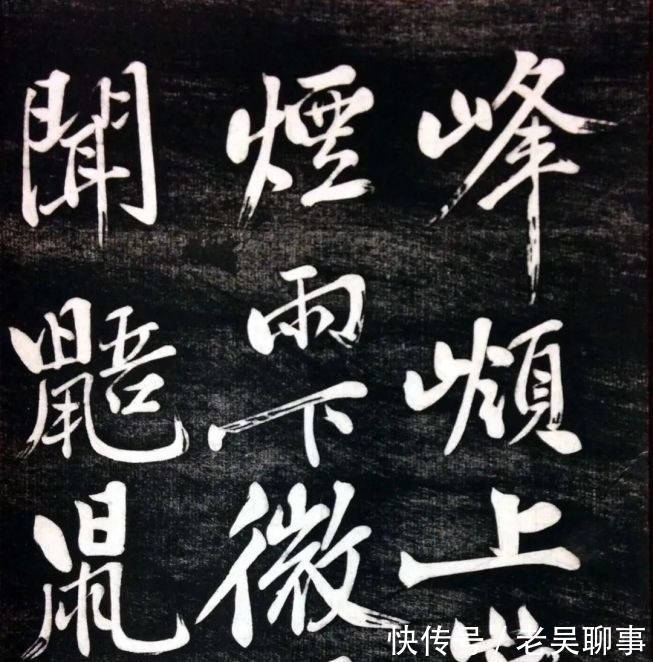 峰上
煙雨下微
聞鼯鼠
快传号 / 老吴聊事